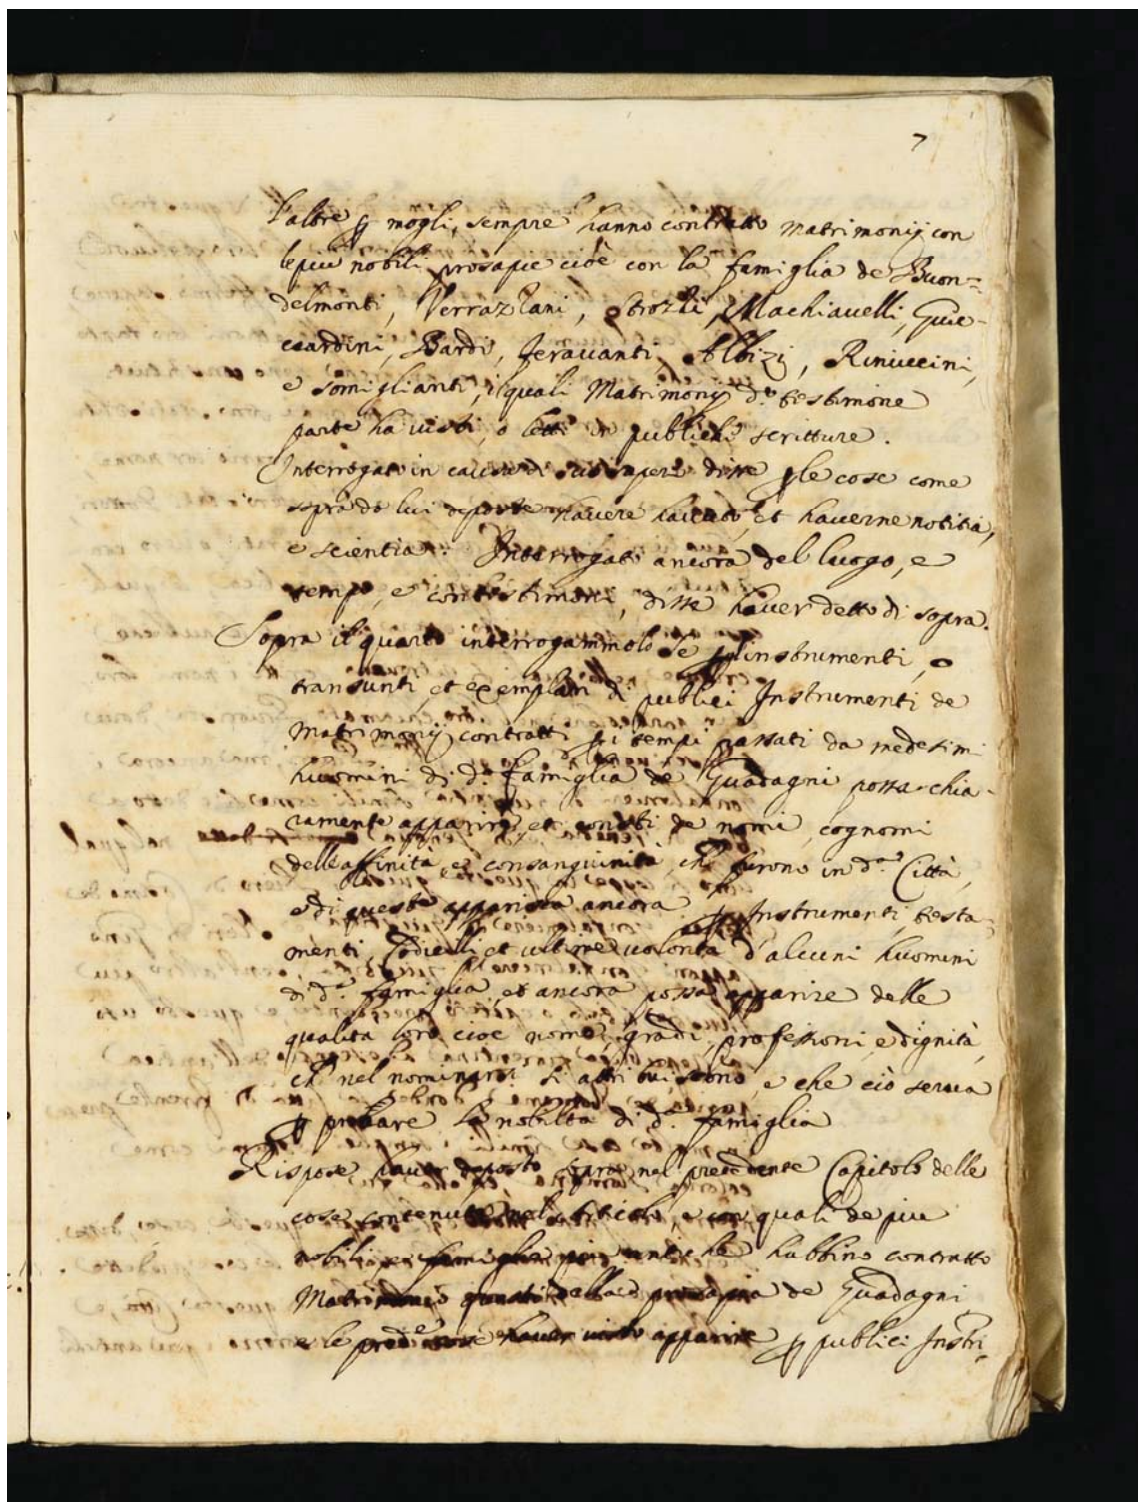 7
l'altre ꝑ mogli, sempre hanno contratto matrimonij con
le piu nobili prosapie cioè con la famiglia de Buon=
delmonti, Verrazzani, Strozzi, Machiauelli, Guic-
ciardini, Bardi, Jerauanti, Albizi, Rinuccini,
e somiglianti, i quali Matrimonij d.º testimone
parte ha uisti, o letti in publiche scritture.
Interrogato in causa di disse ꝑ le cose come
sopra da lui deposte hauere hauuto, et hauerne notitia,
e scientia. Interrogato ancora del luogo, e
tempo, e contestimoni, disse hauer detto di sopra.
Sopra il quarto interrogammolo se ꝑ gl'instrumenti, o
transunti, et exemplari di publici Instrumenti de
matrimonij contratti ꝑ i tempi passati da medesimi
huomini di d.ª famiglia de Guadagni possa chia-
ramente apparire, et de nomi, cognomi
dell'affinità, e consanguinità, che furono in d.ª Città,
e di queste apparisca ancora ꝑ Instrumenti, testa-
menti, Codicilli, et ultime uolontà d'alcuni huomini
di d.ª famiglia, et ancora possa apparire delle
qualità loro cioe nome, gradi, professioni, e dignità,
che nel nominarsi si attribuiscono, e che ciò serua
ꝑ probare la nobiltà di d.ª famiglia
Rispose hauer deposto sopra nel precedente Capitolo delle
cose contenute nel articolo, e con quali de piu
nobili, e famiglie piu antiche habbino contratto
Matrimonio quelli della prosapia de Guadagni
e le pred.e cose hauer uisto apparire ꝑ publici Instru=